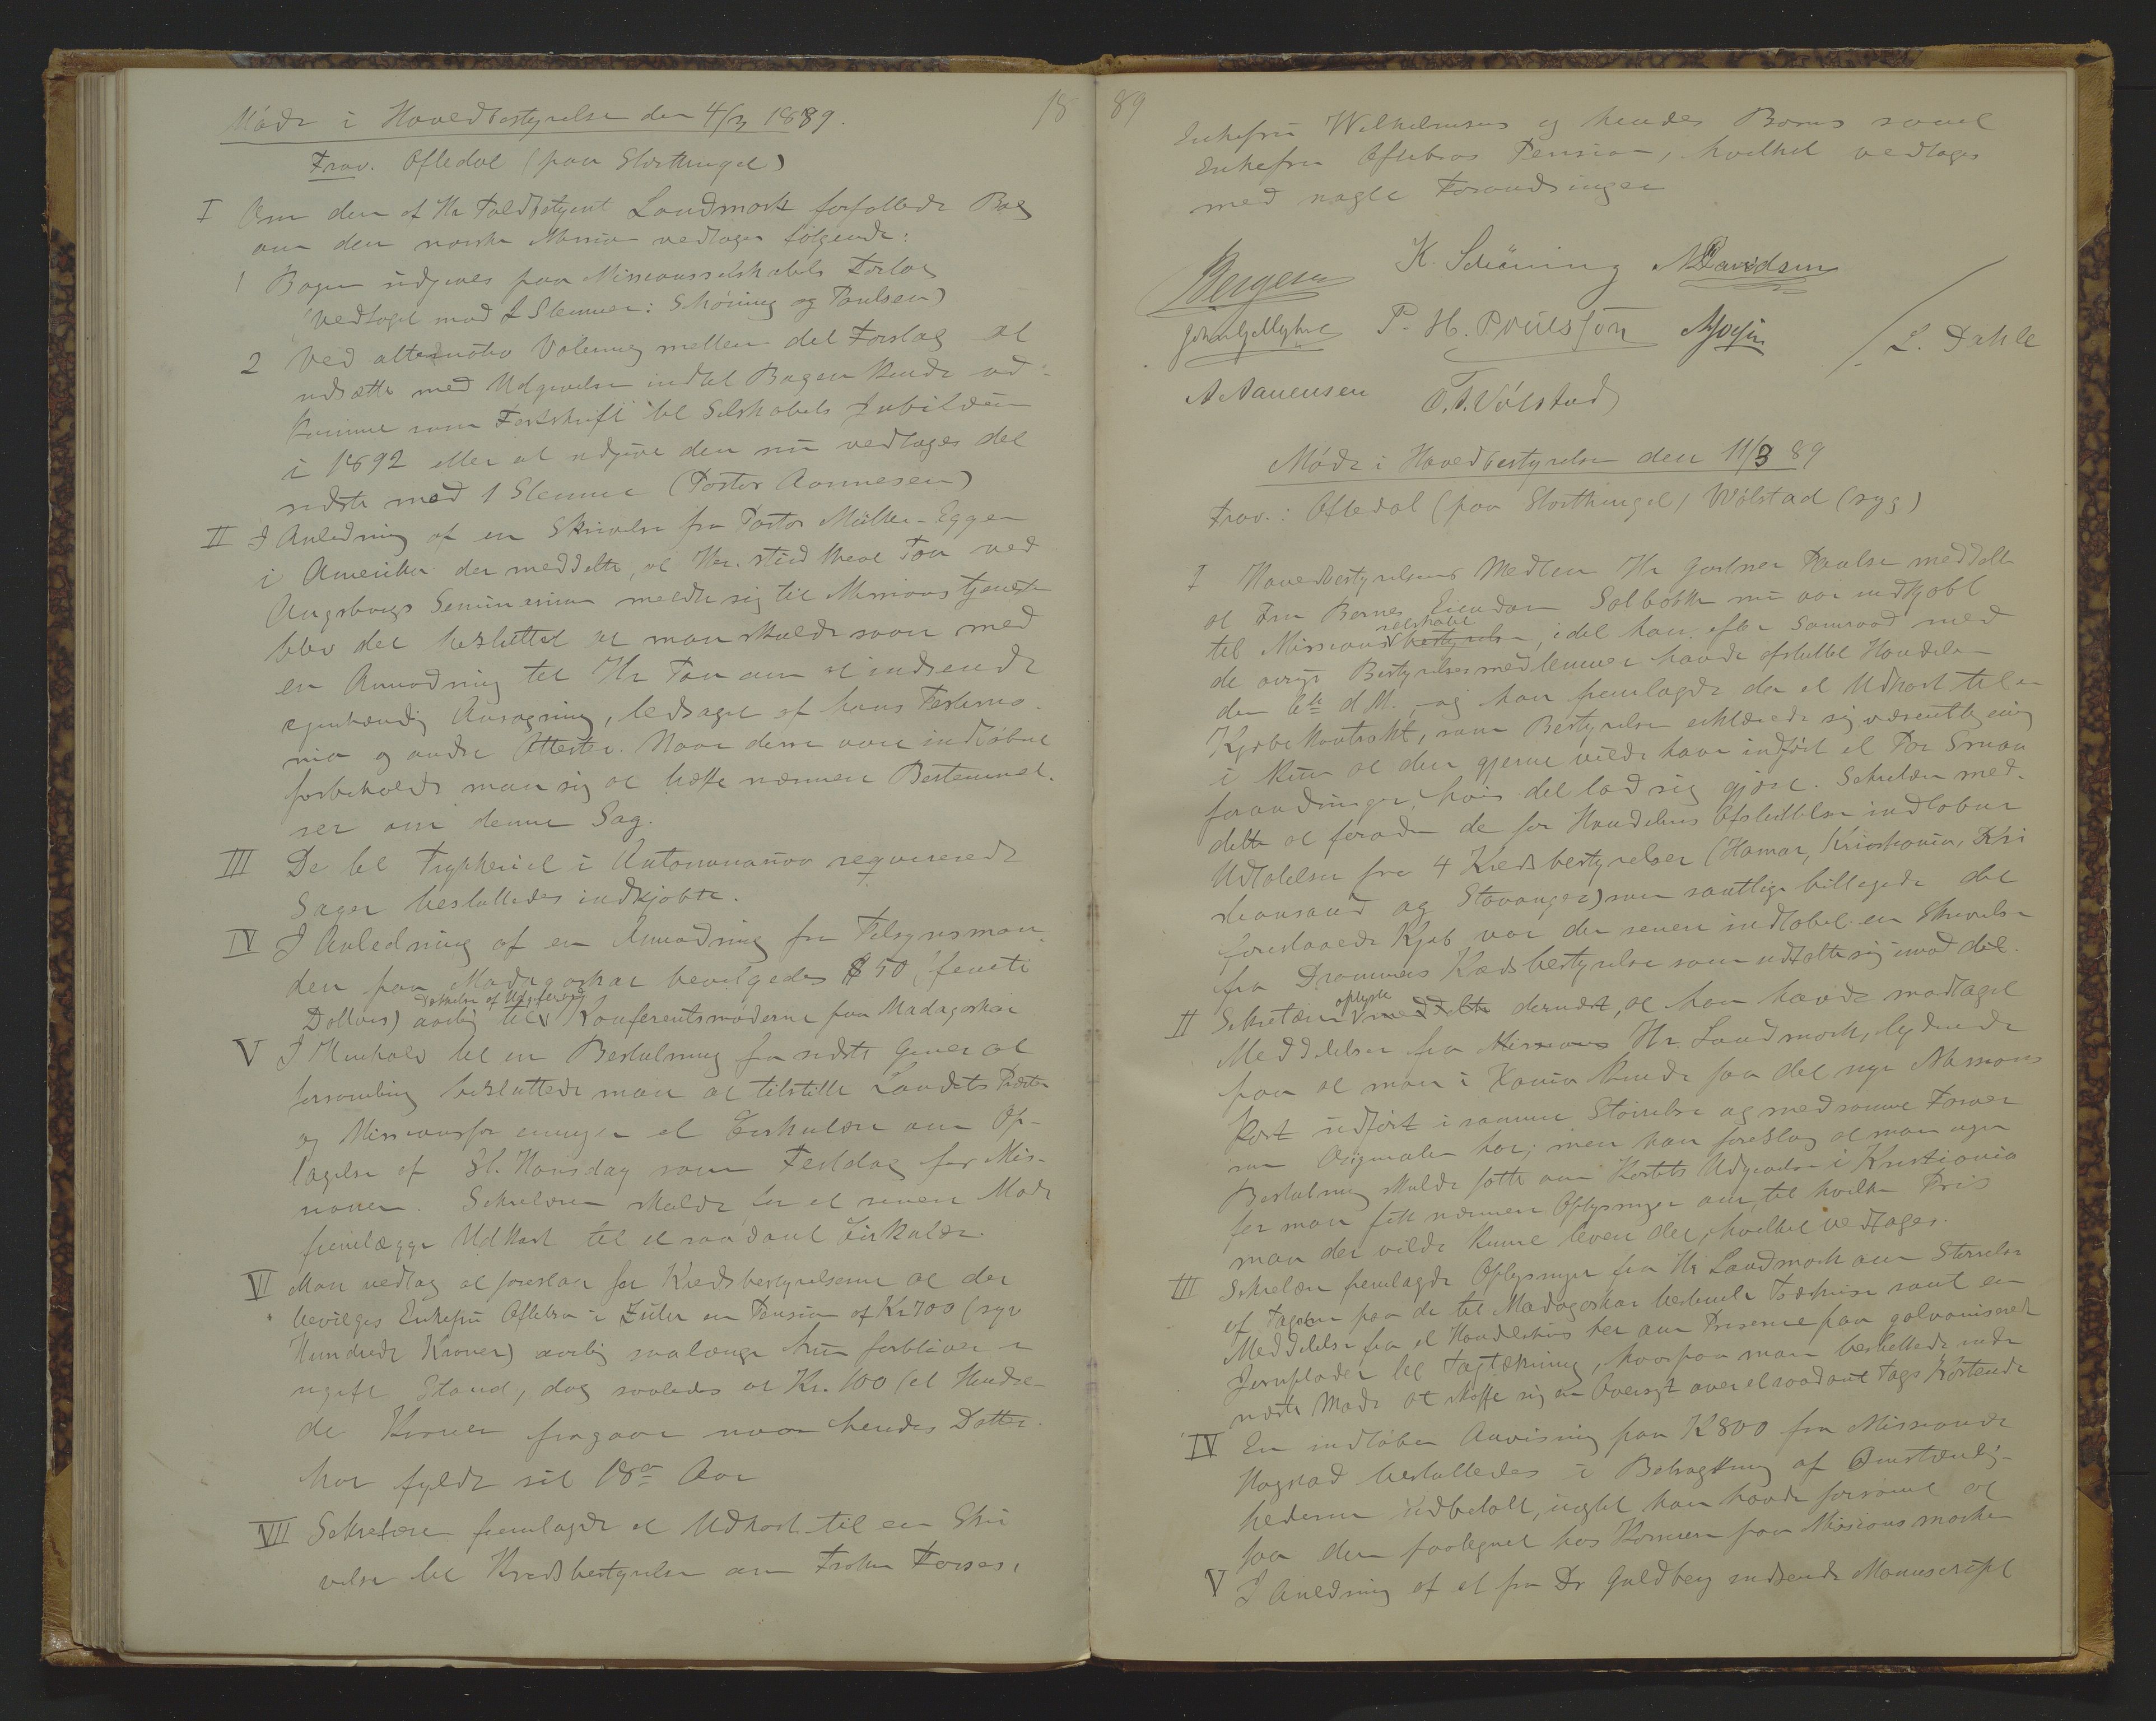 18
Møde i Hovedbestyrelse den 4/3 1889.
Frav. Oftedal (paa Storthinget)
I Om den af Hr Toldbetjent Landmark forfattede Bog
om den norske Mission vedtoges følgende:
1 Bogen udgives paa Missionsselskabets Forlag
(vedtaget mod 2 Stemmer: Schøning og Poulsen)
2 Ved alternativ Votering mellem det Forslag at
udsætte med Udgivelse indtil Bogen kunde ud-
komme som Festskrift til Selskabets Jubilæum
i 1892 eller at udgive den nu vedtoges det
sidste mod 1 Stemme (Pastor Aannesen)
II I Anledning af en Skrivelse fra Pastor Müller-Eggen
i Amerika der meddelte, at Hr. stud theol Tou ved
Augsburgs Seminarium meldte sig til Missionstjeneste
blev det besluttet at man skulde svare med
en Anmodning til Hr Tou om at indsende
egenhændig Ansøgning, ledsaget af hans Testimo-
nia og andre Attester. Naar disse vare indløbne
forbeholdt man sig at træffe nærmere Bestemmel-
ser om denne Sag.
III De til Trykkeriet i Antananarivo requirerede
Sager besluttedes indkjøbte.
IV I Anledning af en Anmodning fra Tilsynsman-
den paa Madagaskar bevilgedes $ 50 (femti
Dollars) aarlig til Dækkelse af Udgifterne Konferentsmøderne paa Madagaskar
V I Henhold til en Beslutning fra sidste General
forsamling besluttede man at tilstille Landets Prester
og Missionsforeninger et Cirkulære om Op-
tagelse af St. Hansdag som Festdag for Mis-
sionen. Sekretæren skulde til et senere Møde
fremlægge Udkast til et saadant Cirkulær.
VI Man vedtog at foreslaa for Kredsbestyrelserne at der
bevilges Enkefru Oftebro i Zulu en Pension af Kr 700 (syv
Hundrede Kroner) aarlig saalænge hun forbliver i
ugift Stand, dog saaledes at Kr. 100 (et Hundre-
de Kroner fragaar naar hendes Datter
har fyldt sit 18de Aar
VII Sekretæren fremlagde et Udkast til en Skri
velse til Kredsbestyrelse om Frøken Borgs,
89
Enkefru Wilhelmsens og hendes Barns samt
Enkefru Oftebros Pension, hvilket vedtoges
med nogle Forandringer
Bergesen K. Schöning N Davidsen
Johan Gjellestad P. H. Poulsson L. Dahle
A Aanensen O. T. Vølstad
Møde i Hovedbestyrelse den 11/3 89
Frav.: Oftedal (paa Storthinget) Vølstad (syg)
I Hovedbestyrelsens Medlem Hr Gartner Poulsen meddelte
at Fru Bernes Eiendom Solbakken nu var indkjøbt
til Missionsselskabet bestyrelsen, idet han efter Samraad med
de øvrige Bestyrelsesmedlemmer havde afsluttet Handelen
den 6te d M. og han fremlagde da et Udkast til en
Kjøbekontrakt, som Bestyrelsen erklærede sig væsentlig enig
i kun at den gjerne vilde have indført et Par Smaa
forandringer, hvis det lod sig gjøre. Sekretæren med-
delte at foruden de før Handelens Afsluttelse indløbne
Udtalelser fra 4 Kredsbestyrelser (Hamar, Kristiania, Kri
stiansand og Stavanger) som samtlige billigede det
foreslaaede Kjøb var der senere indløbet en Skrivelse
fra Drammens Kredsbestyrelse som udtalte sig imod det.
II Sekretæren oplyste meddelte dernæst, at han havde modtaget
Meddelelse fra Missions Hr Landmark, lydende
paa at man i Xania kunde faa det nye Missions
Kort udført i samme Størrelse og med samme Farver
som Originalen har; men han foreslog at man ingen
Beslutning skulde fatte om Kortets Udgivelse i Kristiania
før man fik nærmere Oplysninger om, til hvilken Pris
man der vilde kunne levere det, hvilket vedtoges.
III Sekretæren fremlagde Oplysninger fra Hr Landmark om Størrelsen
af Tagene paa de til Madagaskar bestemte Træhuse samt en
Meddelelse fra et Handelshus her om Priserne paa galvaniserede
Jernplader til Tagtækning, hvorpaa man besluttede inden
næste Møde at skaffe sig en Oversigt over et saadant Tags Kostende
IV En indløben Anvisning paa K 800 fra Missionær
Hogstad besluttedes i Betragtning af Omstændig-
hederne udbetalt, uagtet han havde forsømt at
faa den paategnet hos Kasserer paa Missionsmarken
V I Anledning af et fra Dr Guldberg indsendt Manuscript